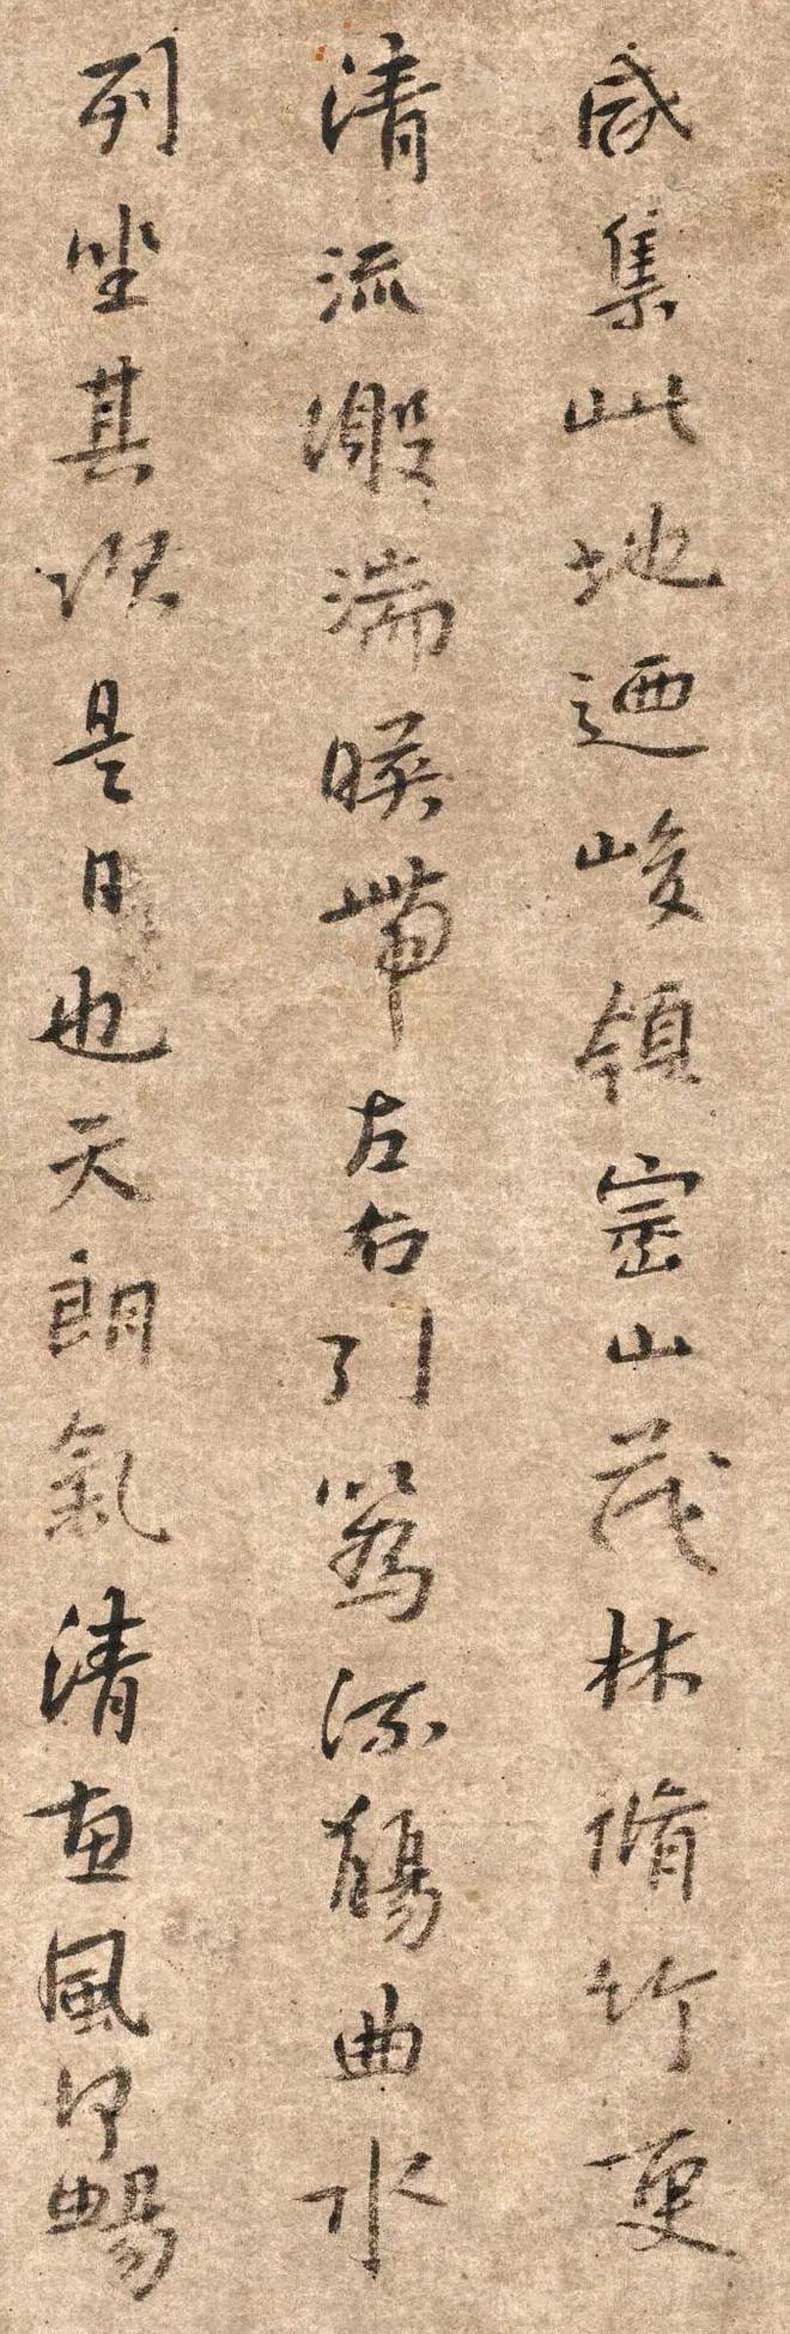 咸集此地迺峻領崇山茂林脩竹更
清流激湍暎帶左右引以為流觴曲水
列坐其次是日也天朗氣清恵風和暢